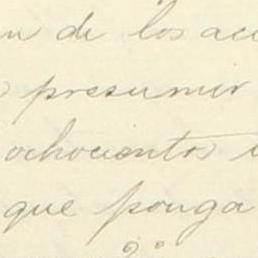 de los
presumir
ochocientos
que ponga
2º